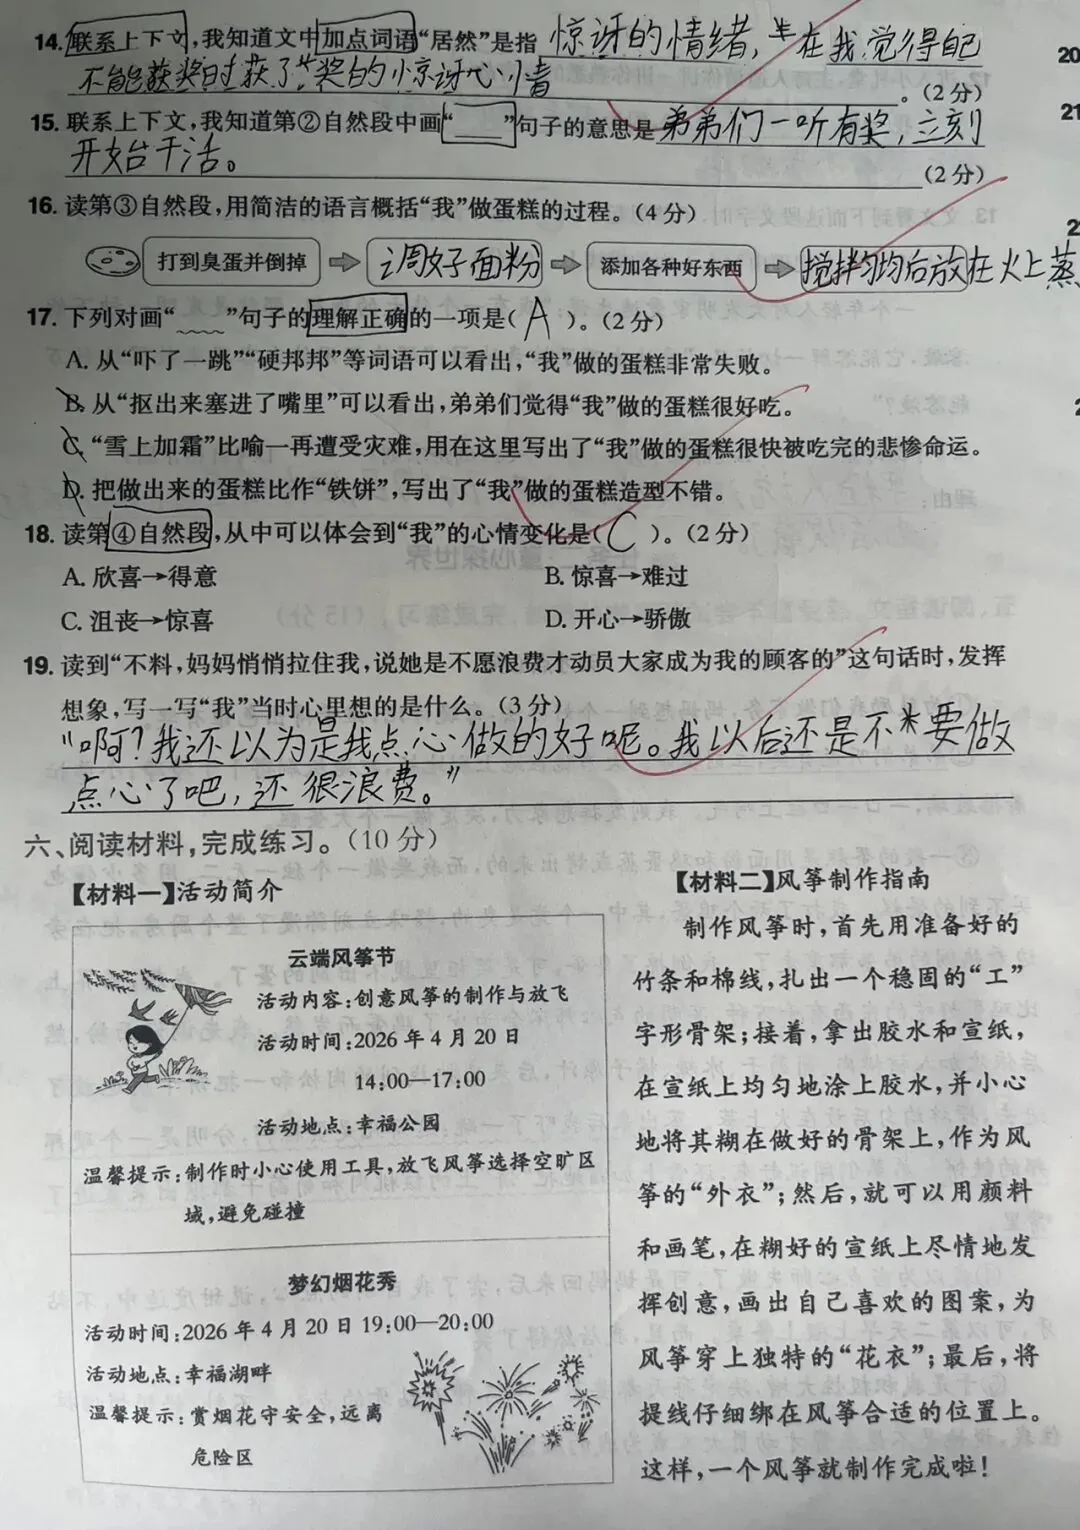 14. 联系上下文，我知道文中加点词语“居然”是指 惊讶的情绪，在我觉得自己
不能获奖时获了奖的惊讶心情
。（2分）
15. 联系上下文，我知道第②自然段中画“____”句子的意思是 弟弟们一听有奖，立刻
开始干活。
（2分）
16. 读第③自然段，用简洁的语言概括“我”做蛋糕的过程。（4分）
打到臭蛋并倒掉 → 调好面粉 → 添加各种好东西 → 搅拌均匀后放在火上蒸
17. 下列对画“﹏﹏”句子的理解正确的一项是（ A ）。（2分）
A. 从“吓了一跳”“硬邦邦”等词语可以看出，“我”做的蛋糕非常失败。
B. 从“抠出来塞进了嘴里”可以看出，弟弟们觉得“我”做的蛋糕很好吃。
C. “雪上加霜”比喻一再遭受灾难，用在这里写出了“我”做的蛋糕很快被吃完的悲惨命运。
D. 把做出来的蛋糕比作“铁饼”，写出了“我”做的蛋糕造型不错。
18. 读第④自然段，从中可以体会到“我”的心情变化是（ C ）。（2分）
A. 欣喜→得意 B. 惊喜→难过
C. 沮丧→惊喜 D. 开心→骄傲
19. 读到“不料，妈妈悄悄拉住我，说她是不愿浪费才动员大家成为我的顾客的”这句话时，发挥
想象，写一写“我”当时心里想的是什么。（3分）
“啊？我还以为是我点心做的好呢。我以后还是不要做
点心了吧，还很浪费。”
六、阅读材料，完成练习。（10分）
【材料一】活动简介
云端风筝节
活动内容：创意风筝的制作与放飞
活动时间：2026年4月20日
14:00—17:00
活动地点：幸福公园
温馨提示：制作时小心使用工具，放飞风筝选择空旷区
域，避免碰撞
梦幻烟花秀
活动时间：2026年4月20日19:00—20:00
活动地点：幸福湖畔
温馨提示：赏烟花守安全，远离
危险区
【材料二】风筝制作指南
制作风筝时，首先用准备好的
竹条和棉线，扎出一个稳固的“工”
字形骨架；接着，拿出胶水和宣纸，
在宣纸上均匀地涂上胶水，并小心
地将其糊在做好的骨架上，作为风
筝的“外衣”；然后，就可以用颜料
和画笔，在糊好的宣纸上尽情地发
挥创意，画出自己喜欢的图案，为
风筝穿上独特的“花衣”；最后，将
提线仔细绑在风筝合适的位置上。
这样，一个风筝就制作完成啦！
20
21
2
2